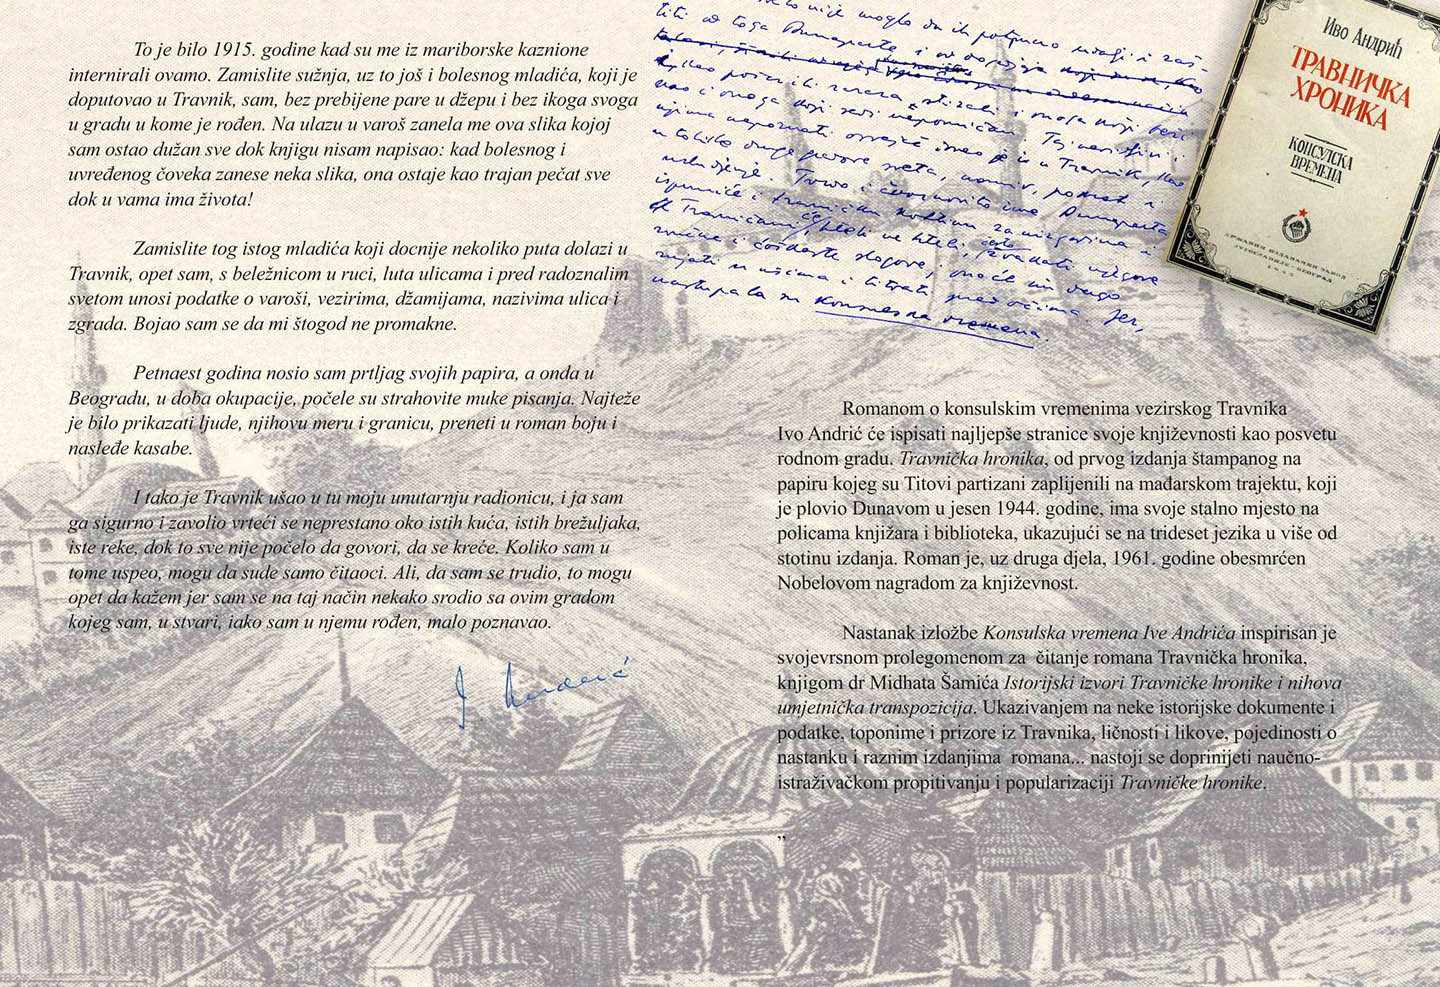 To je bilo 1915. godine kad su me iz mariborske kaznione
internirali ovamo. Zamislite sužnja, uz to još i bolesnog mladića, koji je
doputovao u Travnik, sam, bez prebijene pare u džepu i bez ikoga svoga
u gradu u kome je rođen. Na ulazu u varoš zanela me ova slika kojoj
sam ostao dužan sve dok knjigu nisam napisao: kad bolesnog i
uvređenog čoveka zanese neka slika, ona ostaje kao trajan pečat sve
dok u vama ima života!
Zamislite tog istog mladića koji docnije nekoliko puta dolazi u
Travnik, opet sam, s beležnicom u ruci, luta ulicama i pred radoznalim
svetom unosi podatke o varoši, vezirima, džamijama, nazivima ulica i
zgrada. Bojao sam se da mi štogod ne promakne.
Petnaest godina nosio sam prtljag svojih papira, a onda u
Beogradu, u doba okupacije, počele su strahovite muke pisanja. Najteže
je bilo prikazati ljude, njihovu meru i granicu, preneti u roman boju i
nasleđe kasabe.
I tako je Travnik ušao u tu moju unutarnju radionicu, i ja sam
ga sigurno i zavolio vrteći se neprestano oko istih kuća, istih brežuljaka,
iste reke, dok to sve nije počelo da govori, da se kreće. Koliko sam u
tome uspeo, mogu da sude samo čitaoci. Ali, da sam se trudio, to mogu
opet da kažem jer sam se na taj način nekako srodio sa ovim gradom
kojeg sam, u stvari, iako sam u njemu rođen, malo poznavao.
I. Andrić
nije moglo da ih potpuno
titi od toga Bunaparte i
u toliko druge gradove sveta,
nastupala su Konsulska vremena.
Иво Андрић
ТРАВНИЧКА
ХРОНИКА
КОНСУЛСКА
ВРЕМЕНА
ДРЖАВНИ ИЗДАВАЧКИ ЗАВОД
ЈУГОСЛАВИЈЕ · БЕОГРАД
1945
Romanom o konsulskim vremenima vezirskog Travnika
Ivo Andrić će ispisati najljepše stranice svoje književnosti kao posvetu
rodnom gradu. Travnička hronika, od prvog izdanja štampanog na
papiru kojeg su Titovi partizani zaplijenili na mađarskom trajektu, koji
je plovio Dunavom u jesen 1944. godine, ima svoje stalno mjesto na
policama knjižara i biblioteka, ukazujući se na trideset jezika u više od
stotinu izdanja. Roman je, uz druga djela, 1961. godine obesmrćen
Nobelovom nagradom za književnost.
Nastanak izložbe Konsulska vremena Ive Andrića inspirisan je
svojevrsnom prolegomenom za čitanje romana Travnička hronika,
knjigom dr Midhata Šamića Istorijski izvori Travničke hronike i nihova
umjetnička transpozicija. Ukazivanjem na neke istorijske dokumente i
podatke, toponime i prizore iz Travnika, ličnosti i likove, pojedinosti o
nastanku i raznim izdanjima romana... nastoji se doprinijeti naučno-
istraživačkom propitivanju i popularizaciji Travničke hronike.
”